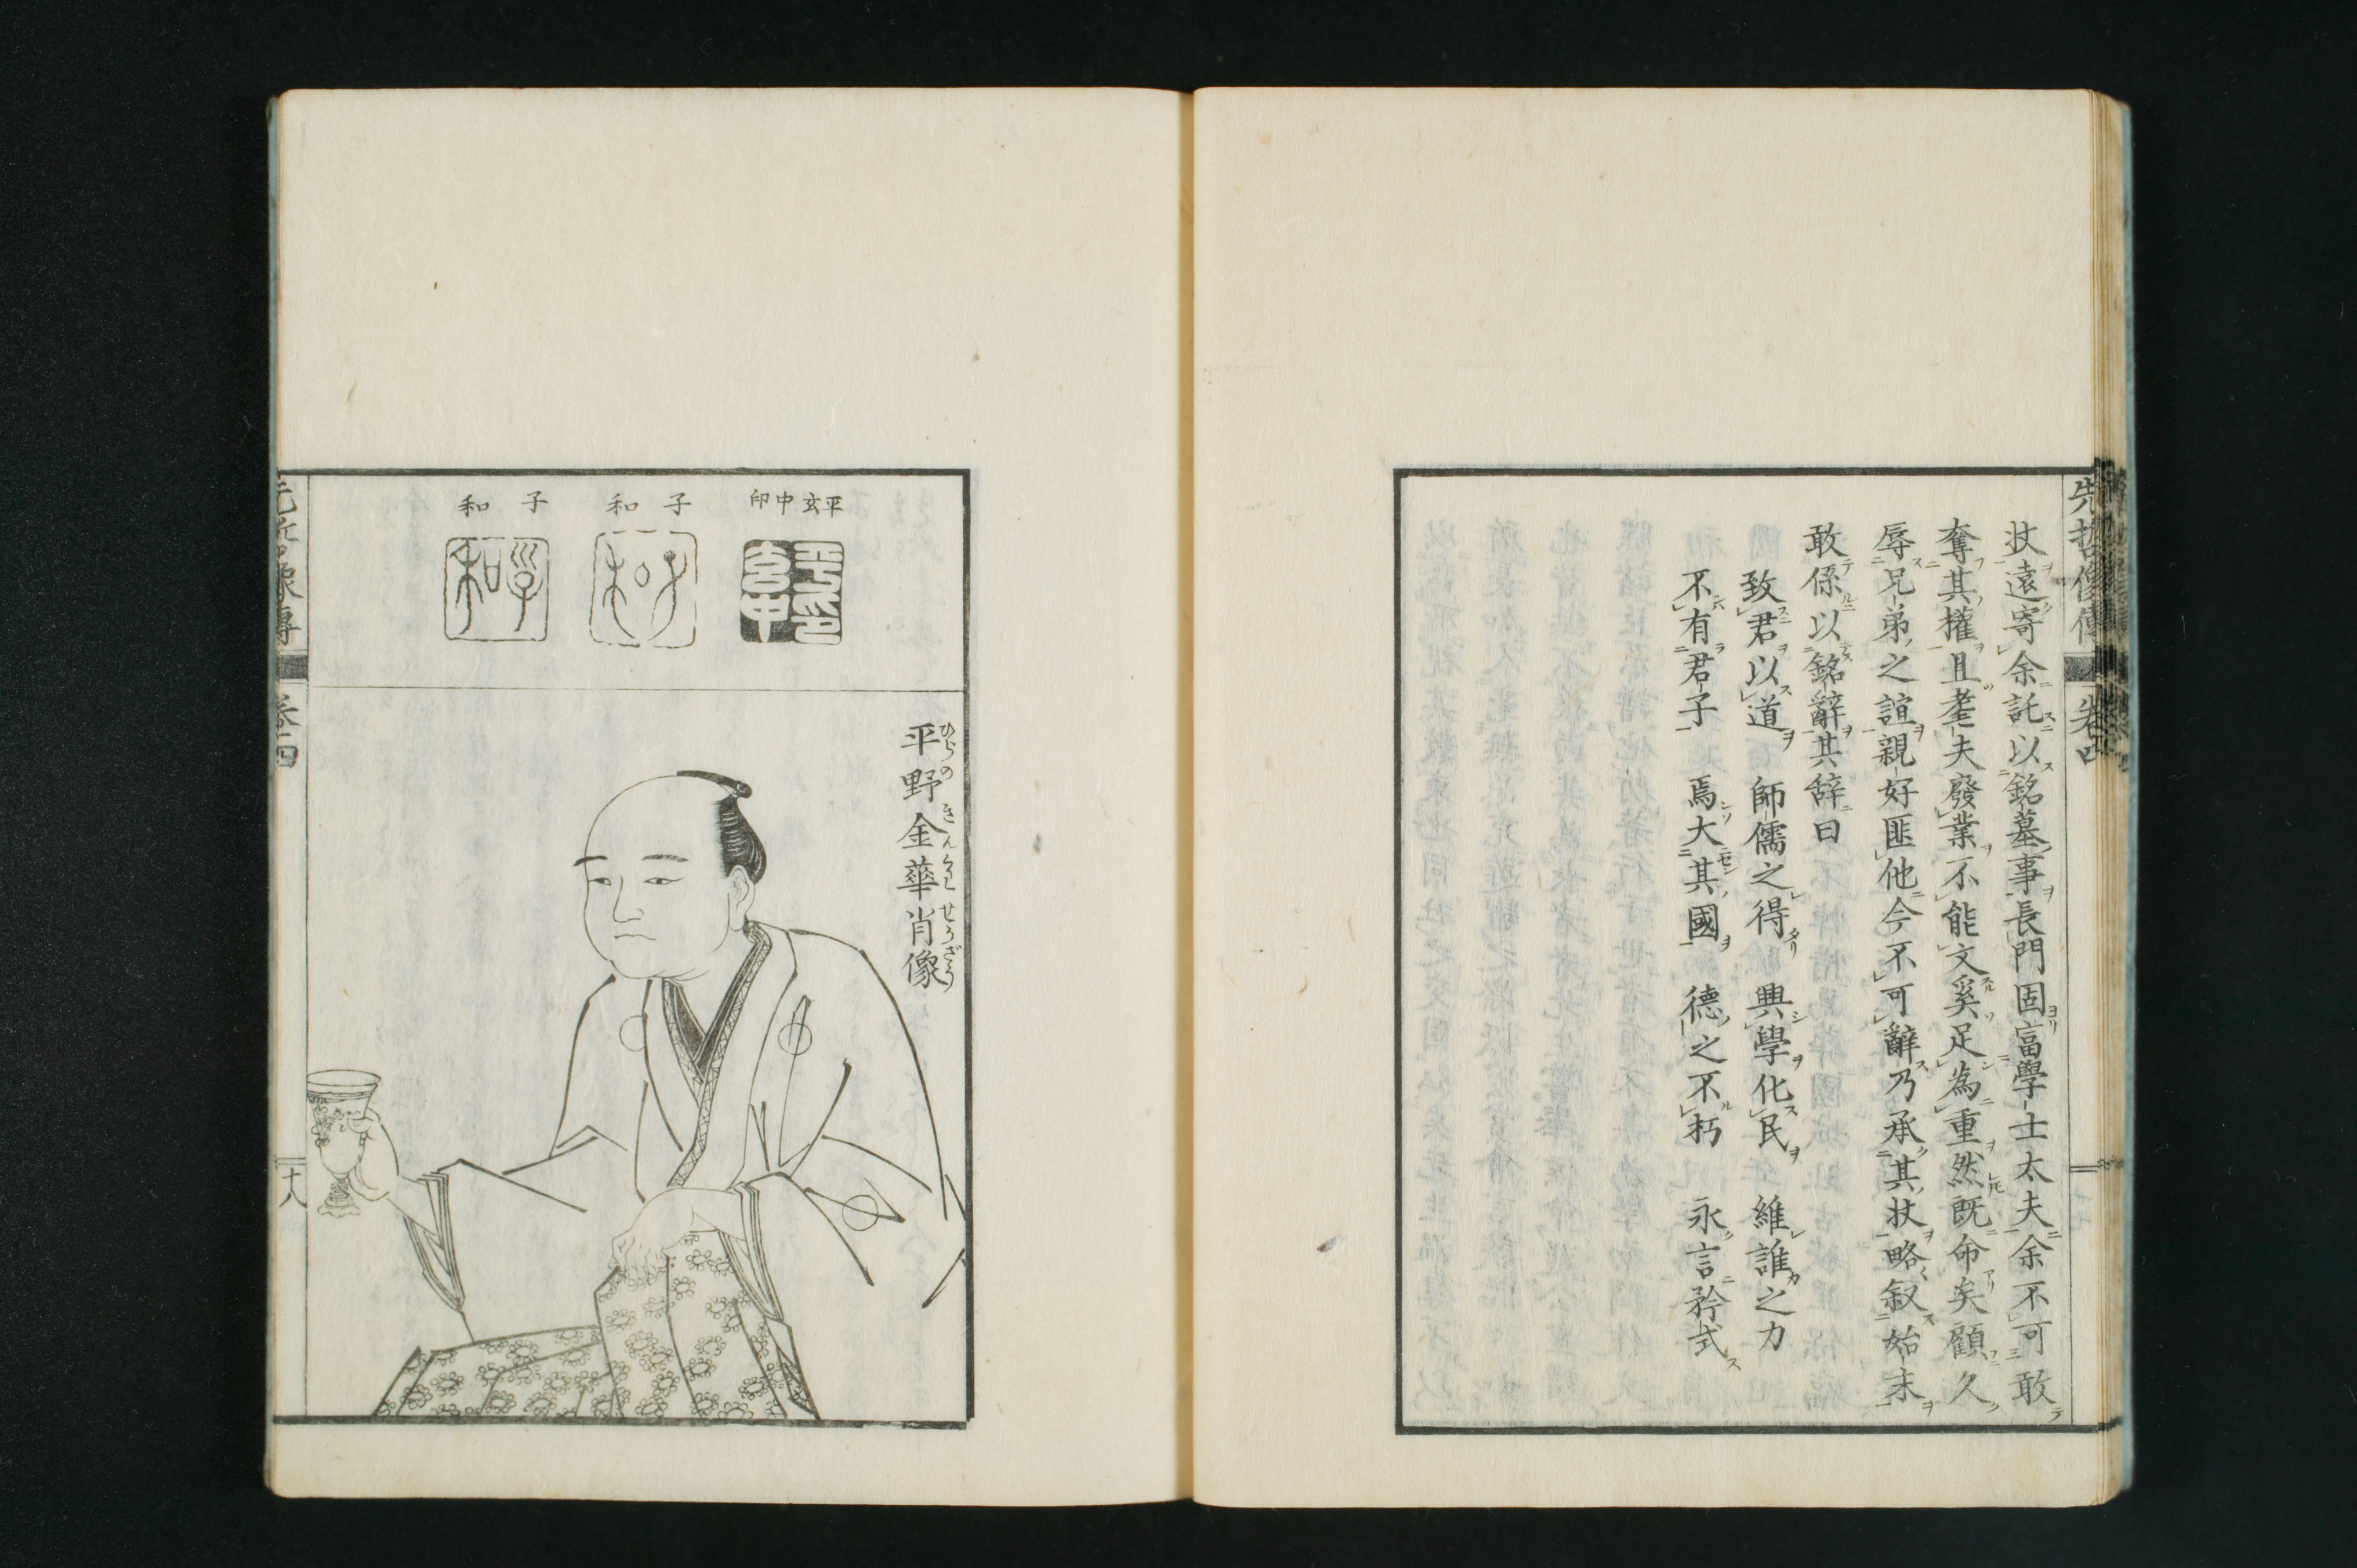 先哲像傳 卷四
状遠寄余託以銘墓事長門固富學士太夫余不可敢
奪其權且耄夫廢業不能文奚足為重然既命矣顧久
辱兄弟之誼親好匪他今不可辭乃承其状略叙始末
敢係以銘辭其辞曰
致君以道 師儒之得 興學化民 維誰之力
不有君子 焉大其國 德之不朽 永言矜式
平玄中印
子和
子和
平野金華肖像
ひらのきんくわせうざう
先哲像傳 卷四 十八